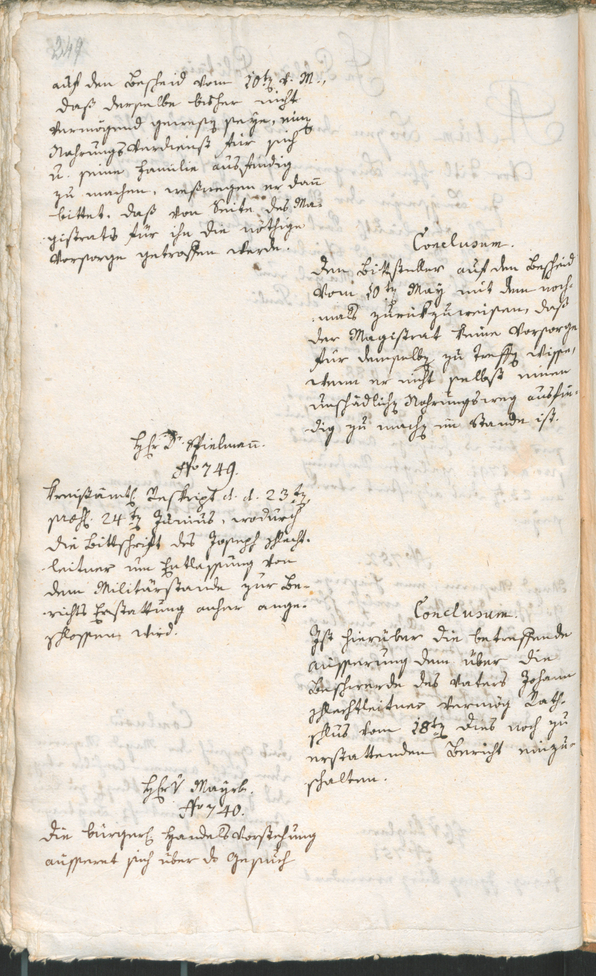 247
auf den Bescheid vom 10tn d. M.,
daß derselbe bisher nicht
vermögend gewesen seye, einen
Nahrungsverdienst für sich
u. seine Familie ausfindig
zu machen, weßwegen er dann
bittet, daß von Seite des Ma-
gistrats für ihn die nöthige
Vorsorge getroffen werde.
Conclusum.
Dem Bittsteller auf den Bescheid
vom 10tn May mit dem noch-
mals zurückzuweisen, daß
der Magistrat keine Vorsorge
für denselben zu treffen wisse,
wenn er nicht selbst einen
unschädlichen Nahrungsweg ausfin-
dig zu machen im Stande ist.
H: Hr. D. Spielmann.
No 749.
Kreisämtl. Reskript d. d. 23tn
präs. 24tn Junius, wodurch
die Bittschrift des Joseph Schlacht-
leitner um Entlassung von
dem Militärstande zur Be-
richts Erstattung anher ange-
schlossen wird.
Conclusum.
Ist hierüber die betreffende
Äusserung dem über die
Beschwerde des Vaters Johann
Schlachtleitner vermög Rath-
schlus vom 18tn dies noch zu
erstattenden Bericht einzu-
schalten.
H: Hr. v. Mayrl.
No 740.
Die bürgerl. Handelsvorstehung
äusseret sich über das Gesuch